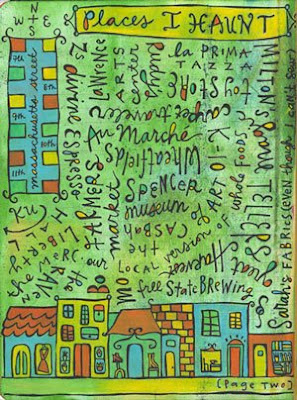 Places I HAUNT
N
W E
S
7th
8th
9th
10th
11th
massachusetts street
Z's
divine ESPRESSO
LAWRENCE
ARTS
center
la PRIMA
TAZZA
FARMERS
market
Au
Marché
Wheatfields
SPENCER
museum of
ART O KU
the
CASBAH
whole foods
MILTON'S
TELLERS
KU
LIBERTY
HALL
the MERC
the RAVEN
our
LOCAL
version of
Harvest
free State BREWING
Sarah's FABRICS (even though I can't sew)
(page TWO)